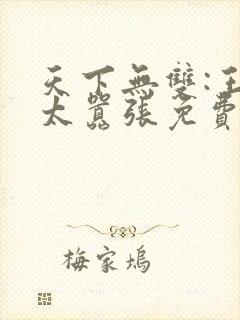 天下無雙:王
太囂張免費
梅家塢